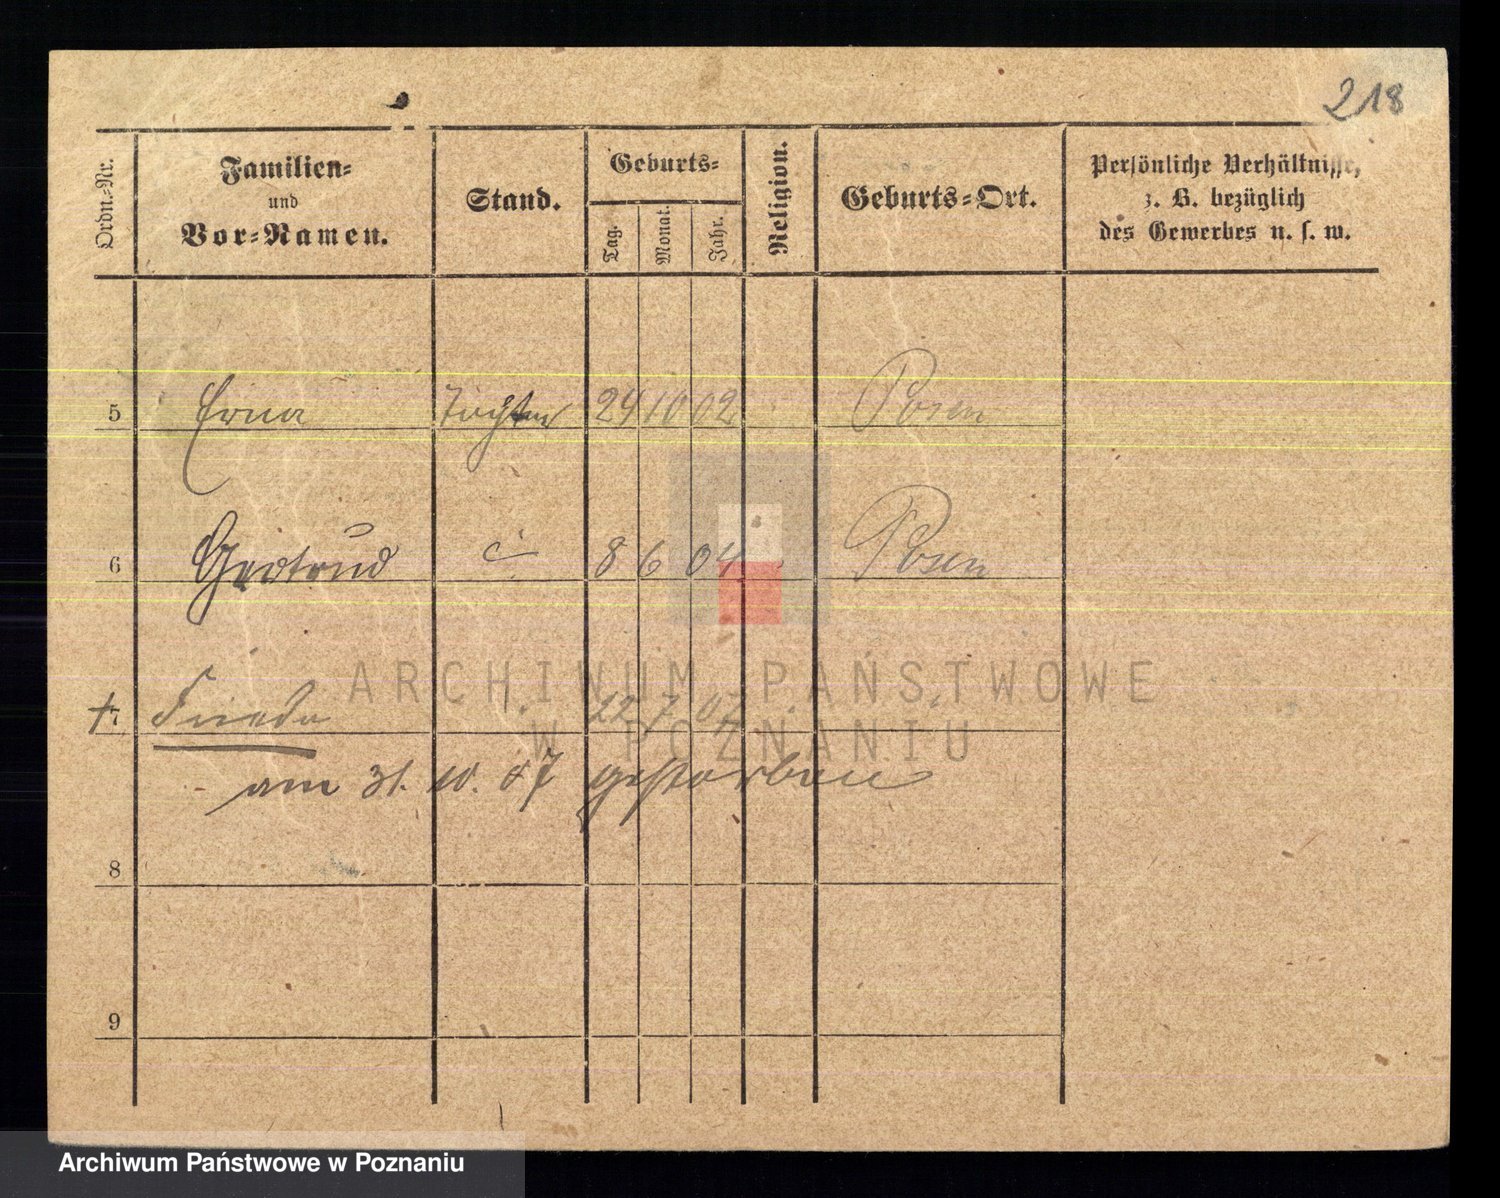 218
Ordn.-Nr.
Familien-
und
Vor-Namen.
Stand.
Geburts-
Tag.
Monat.
Jahr.
Religion.
Geburts-Ort.
Persönliche Verhältnisse,
z. B. bezüglich
des Gewerbes u. s. w.
5 Erna Tochter 24 10 02 Posen
6 Gertrud 8 6 04 Posen
+ 7 Frieda 22 7 07
am 31. 10. 07 gestorben
8
9
ARCHIWUM PAŃSTWOWE
W POZNANIU
Archiwum Państwowe w Poznaniu